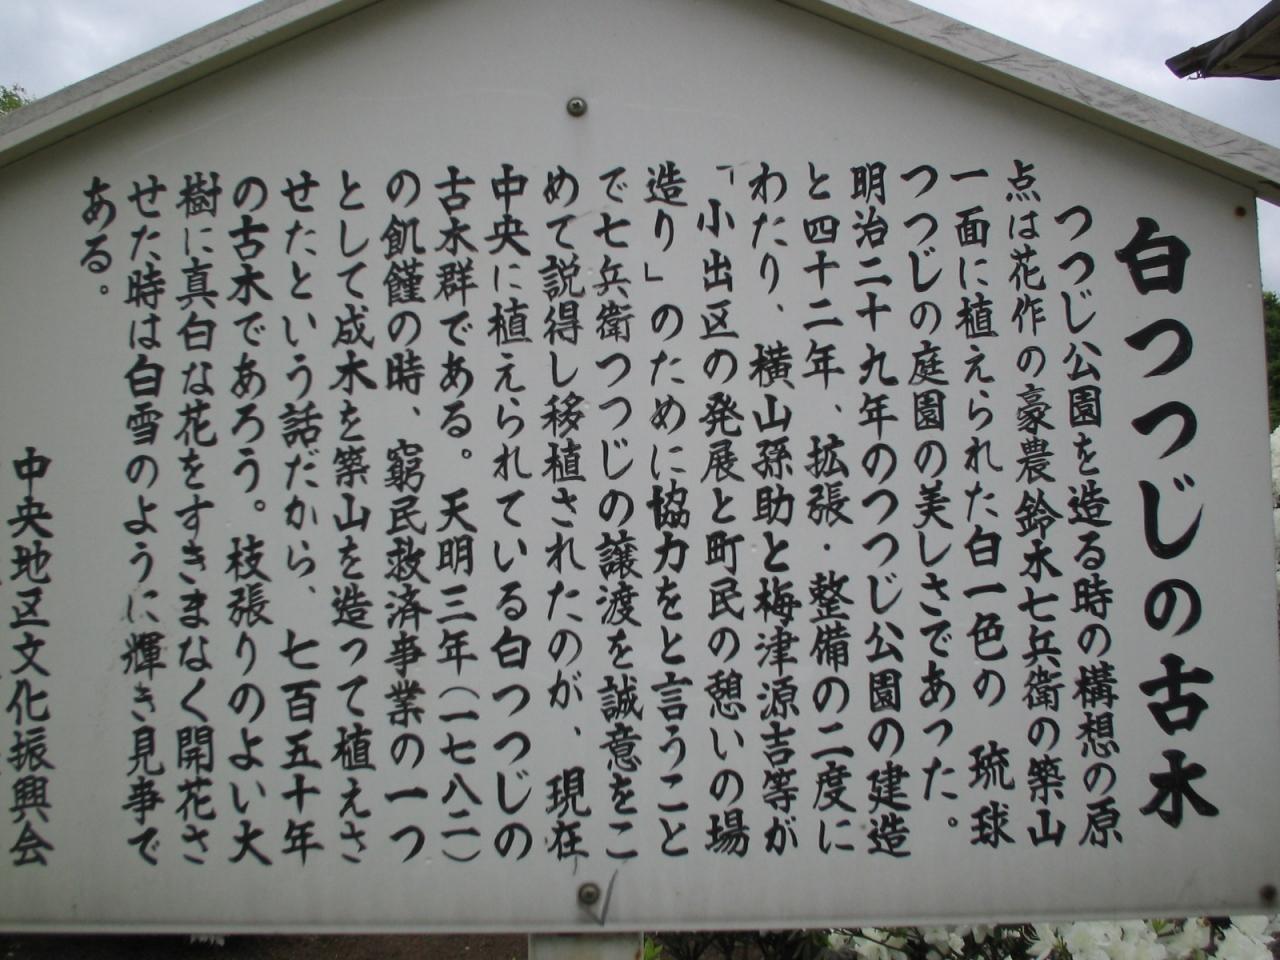 白つつじの古木
つつじ公園を造る時の構想の原
点は花作の豪農鈴木七兵衛の築山
一面に植えられた白一色の　琉球
つつじの庭園の美しさであった。
明治二十九年のつつじ公園の建造
と四十二年、拡張・整備の二度に
わたり、横山孫助と梅津源吉等が
「小出区の発展と町民の憩いの場
造り」のために協力をと言うこと
で七兵衛つつじの譲渡を誠意をこ
めて説得し移植されたのが、現在
中央に植えられている白つつじの
古木群である。天明三年（一七八二）
の飢饉の時、窮民救済事業の一つ
として成木を築山を造って植えさ
せたという話だから、七百五十年
の古木であろう。枝張りのよい大
樹に真白な花をすきまなく開花さ
せた時は白雪のように輝き見事で
ある。
中央地区文化振興会